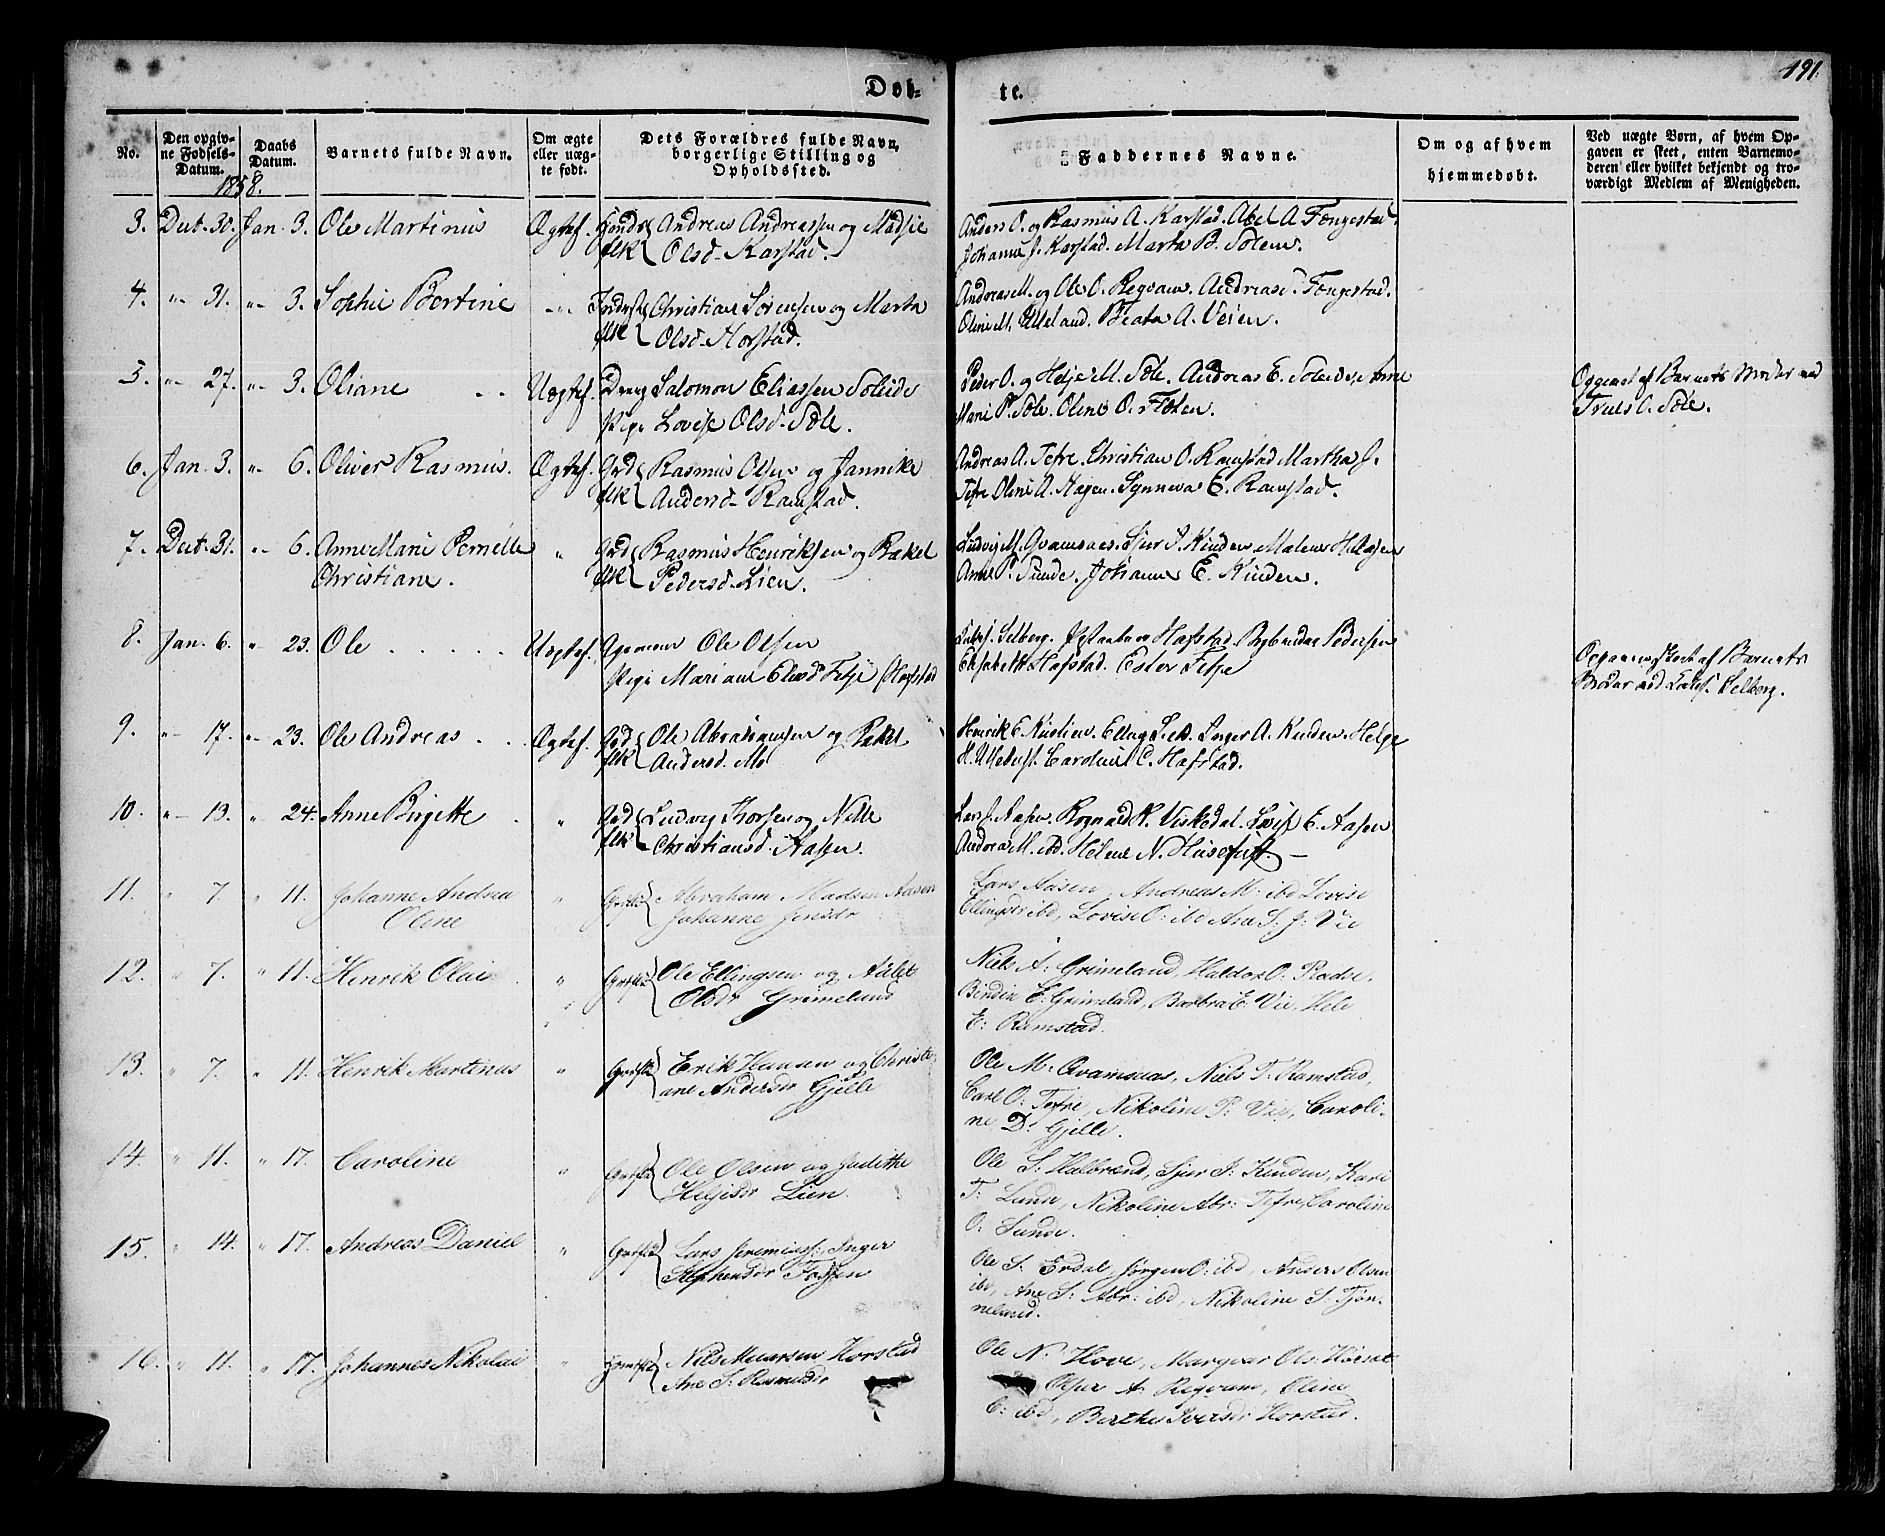 191.
Døb-
te.
No.
Den opgivne Fødsels-Datum.
Daabs Datum.
Barnets fulde Navn.
Om ægte eller uægte født.
Dets Forældres fulde Navn, borgerlige Stilling og Opholdssted.
Faddernes Navne.
Om og af hvem hjemmedøbt.
Ved uægte Børn, af hvem Opgaven er skeet, enten Barnemoderen eller hvilket bekjendt og troværdigt Medlem af Menigheden.
1858.
3. 30. Jan. 3. Ole Martinus Ægtef. Andreas Andreassen og Madsie
Olsd. Karstad.
Anders O. og Rasmus A. Karstad. Abel A. Fængestad.
Johanne J. Karstad. Marta B. Solem.
4. " 31. " 3. Sophie Bertine Christian Sørensen og Marta
Olsd. Horstad.
Andreas M. og Ole O. Regvam. Andreas Fængestad.
Oline M. Beata A. Veien.
5. " 27. " 3. Oliane Uægtef. Salomon Eliassen Soleide
Pige Lovise Olsd. Sole.
Peder O. og Helje M. Sole. Andreas E. Soleide, Anne
Marie P. Sole. Oline O. Floten.
af Barnets Moder med
Truls O. Sole.
6. Jan. 3. " 6. Oliver Rasmus. Ægtef. Grd flk Rasmus Olsen og Jannike
Andersd. Ramstad.
Andreas A. Tefre. Christian O. Ramstad Martha J.
Tefre Oline A. Hagen. Synneva E. Ramstad.
7. 31. " 6. Anne Marie Pernelle " Grd flk Rasmus Henriksen og Rakel
Christiane. Pedersd. Lien.
Ludvig M. Qvamsaas. Sjur J. Kinden Malene
Anne P. Sunde. Johanne E. Kinden.
8. Jan. 6. " 23. Ole Uægtef. Ole Olsen
Pige Mariane Hafstad
Selberg. Hafstad. Pedersen
Elisabeth Hafstad. Ester
af Barnets
Moder med Selberg.
9. " 17. " 23. Ole Andreas Ægtef. Grd flk Ole Abrahamsen og Rakel
Andersd. Mo
Henrik E. Inger A. Kinden. Helge
Caroline C. Hafstad.
10. " 13. " 24. Anne Birgitte " Grd flk Ludvig Thorsen og Nille
Christiansd. Aasen.
Lars J. Aasen. Rognald N. Viskedal. Lovise E. Aasen
Andrea M. ibd. Helene N.
11. " 7. " 11. Johanne Andrea " Abraham Madsen Aasen
Oline Johanne Jensdr
Lars Aasen, Andreas M. ibd Lovise
Ellingsdr ibd, Lovise O: ibd Ane S. J: Vie
12. " 7. " 11. Henrik Olai " Ole Ellingsen og
Olsdr Grimeland
Niels A: Grimeland, Haldor O.
E: Grimeland, Barbra E. Vie,
E: Ramstad.
13. " 7. " 11. Henrik Martinus " Erik Hansen og Christi-
ane Andersdr Gjelle
Ole M: Qvamsaas, Niels T: Ramstad,
Carl O: Tefre, Nikoline P: Vie, Caroli-
ne D: Gjelle.
14. " 11. " 17. Caroline " Ole Olsen og Judithe
Heljesdr Lien.
Ole S: Halbrend, Sjur J: Kinden, Kari
T: Lunde, Nikoline Abr: Tefre, Caroline
O: Sunde.
15. " 14. " 17. Andreas Daniel " Lars Jeremiass: Inger
Stephensdr Fossen
Ole S. Erdal Jørgen O: ibd, Anders Olsen
ibd, Ane S: Abr: ibd, Nikoline S. Tjøn-
neland.
16. " 11. " 17. Johannes Nikolai " Nils Horstad
Ane S: Rasmusdr
Ole N. Hove, Ols: Horstad
A. Regvam, Oline
C: ibd, Berthe Iversdr Horstad.